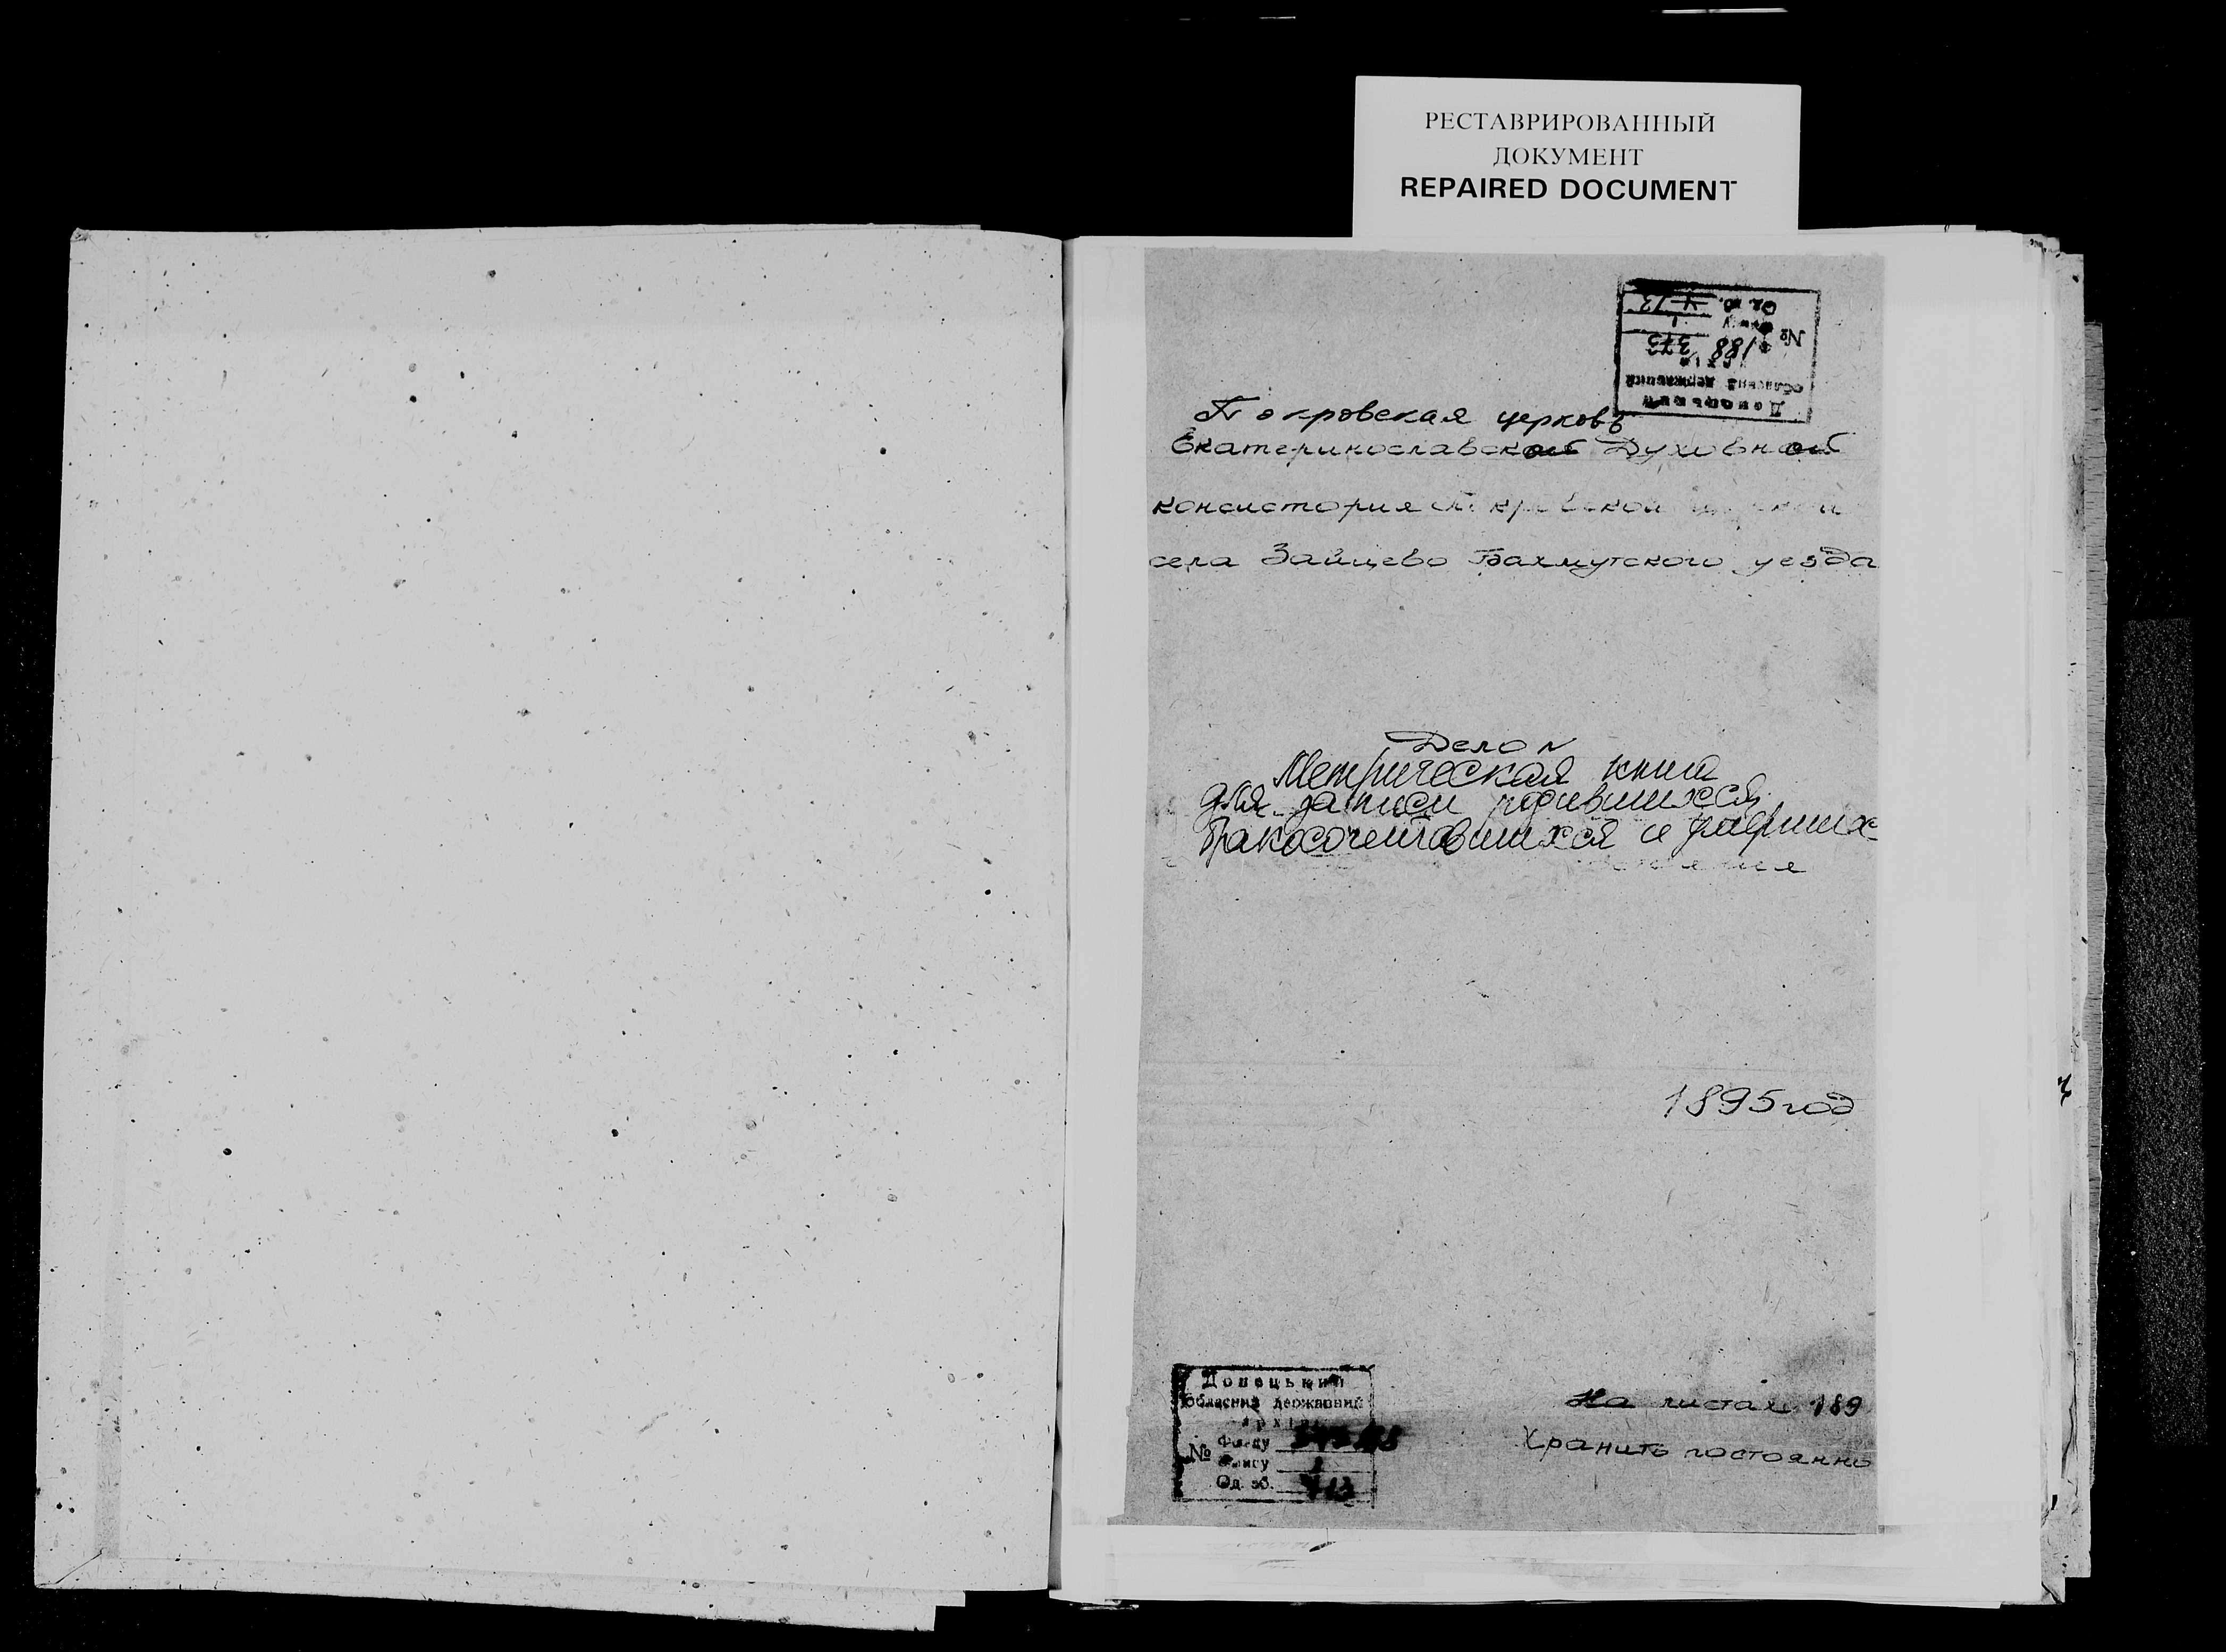 РЕСТАВРИРОВАННЫЙ
ДОКУМЕНТ
REPAIRED DOCUMENT
Донецький
обласний державний
архів
№
188 373
1
Од. зб.
Покровская церковь
Екатеринославской Духовной
консистория Покровской
села Зайцево Бахмутского уезда
Дело №
Метрическая книга
для записи родившихся
бракосочетавшихся и умерших
1895 год
Донецький
обласний державний
архів
№ Фонду
Опису 1
Од. зб.
На листах 189
Хранить постоянно